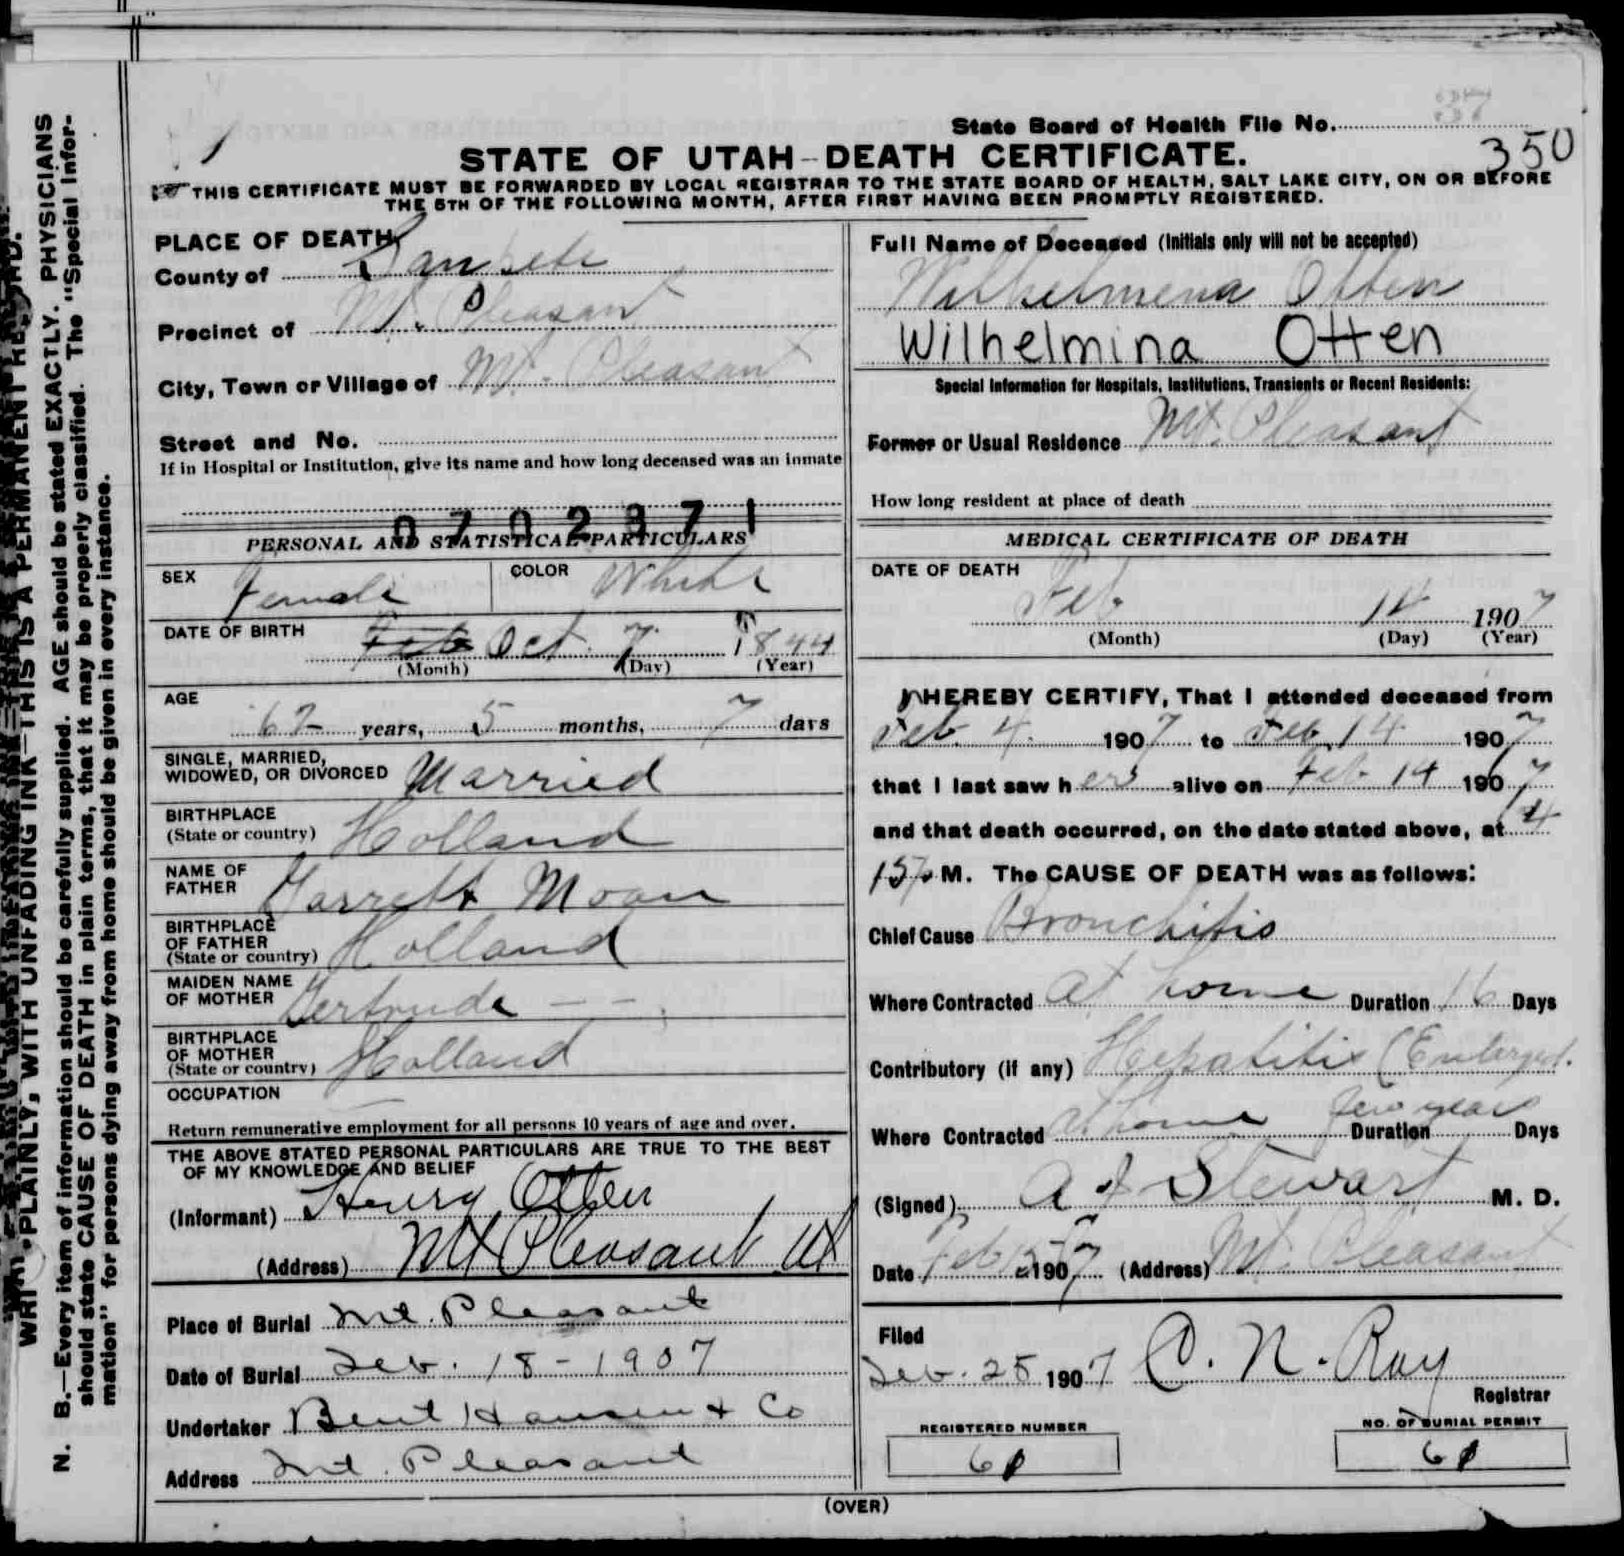 State Board of Health File No.
350
STATE OF UTAH—DEATH CERTIFICATE.
THIS CERTIFICATE MUST BE FORWARDED BY LOCAL REGISTRAR TO THE STATE BOARD OF HEALTH, SALT LAKE CITY, ON OR BEFORE
THE 5TH OF THE FOLLOWING MONTH, AFTER FIRST HAVING BEEN PROMPTLY REGISTERED.
PLACE OF DEATH
County of Sanpete
Precinct of Mt. Pleasant
City, Town or Village of Mt. Pleasant
Street and No.
If in Hospital or Institution, give its name and how long deceased was an inmate
070 2371
PERSONAL AND STATISTICAL PARTICULARS
SEX Female COLOR White
DATE OF BIRTH Feb Oct. 7 1844
(Month) (Day) (Year)
AGE
62 years, 5 months, 7 days
SINGLE, MARRIED,
WIDOWED, OR DIVORCED Married
BIRTHPLACE
(State or country) Holland
NAME OF
FATHER Garrett Moan
BIRTHPLACE
OF FATHER
(State or country) Holland
MAIDEN NAME
OF MOTHER Gertrude — —
BIRTHPLACE
OF MOTHER
(State or country) Holland
OCCUPATION
Return remunerative employment for all persons 10 years of age and over.
THE ABOVE STATED PERSONAL PARTICULARS ARE TRUE TO THE BEST
OF MY KNOWLEDGE AND BELIEF
(Informant) Henry Otten
(Address) Mt Pleasant Ut
Place of Burial Mt. Pleasant
Date of Burial Feb. 18-1907
Undertaker Bent Hansen & Co
Address Mt. Pleasant
Full Name of Deceased (Initials only will not be accepted)
Wilhelmena Otten
Wilhelmina Otten
Special Information for Hospitals, Institutions, Transients or Recent Residents:
Former or Usual Residence Mt. Pleasant
How long resident at place of death
MEDICAL CERTIFICATE OF DEATH
DATE OF DEATH
Feb 14 1907
(Month) (Day) (Year)
I HEREBY CERTIFY, That I attended deceased from
Feb. 4. 1907 to Feb. 14 1907
that I last saw her alive on Feb. 14 1907
and that death occurred, on the date stated above, at 4
M. The CAUSE OF DEATH was as follows:
Chief Cause Bronchitis
Where Contracted at home Duration 16 Days
Contributory (if any) Hepatitis (Enlarged.
Where Contracted at home Duration few years Days
(Signed) Stewart M. D.
Date Feb 1907 (Address) Mt. Pleasant
Filed
Feb. 25 1907 C. N. Ray
Registrar
REGISTERED NUMBER
61
NO. OF BURIAL PERMIT
61
(OVER)
PLAINLY, WITH UNFADING INK—THIS IS A PERMANENT RECORD.
N. B.—Every item of information should be carefully supplied. AGE should be stated EXACTLY. PHYSICIANS
should state CAUSE OF DEATH in plain terms, that it may be properly classified. The "Special Infor-
mation" for persons dying away from home should be given in every instance.